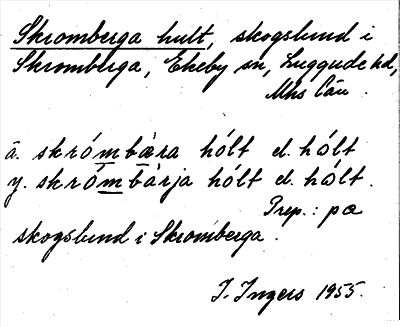 Skromberga hult, skogslund i
Skromberga, Ekeby sn, Luggude hd,
Mhs län.
ä. skrómbæra hólt el. hólt
y. skrómbárja hólt el. hólt.
Prep.: pæ
skogslund i Skromberga.
I. Ingers 1955.